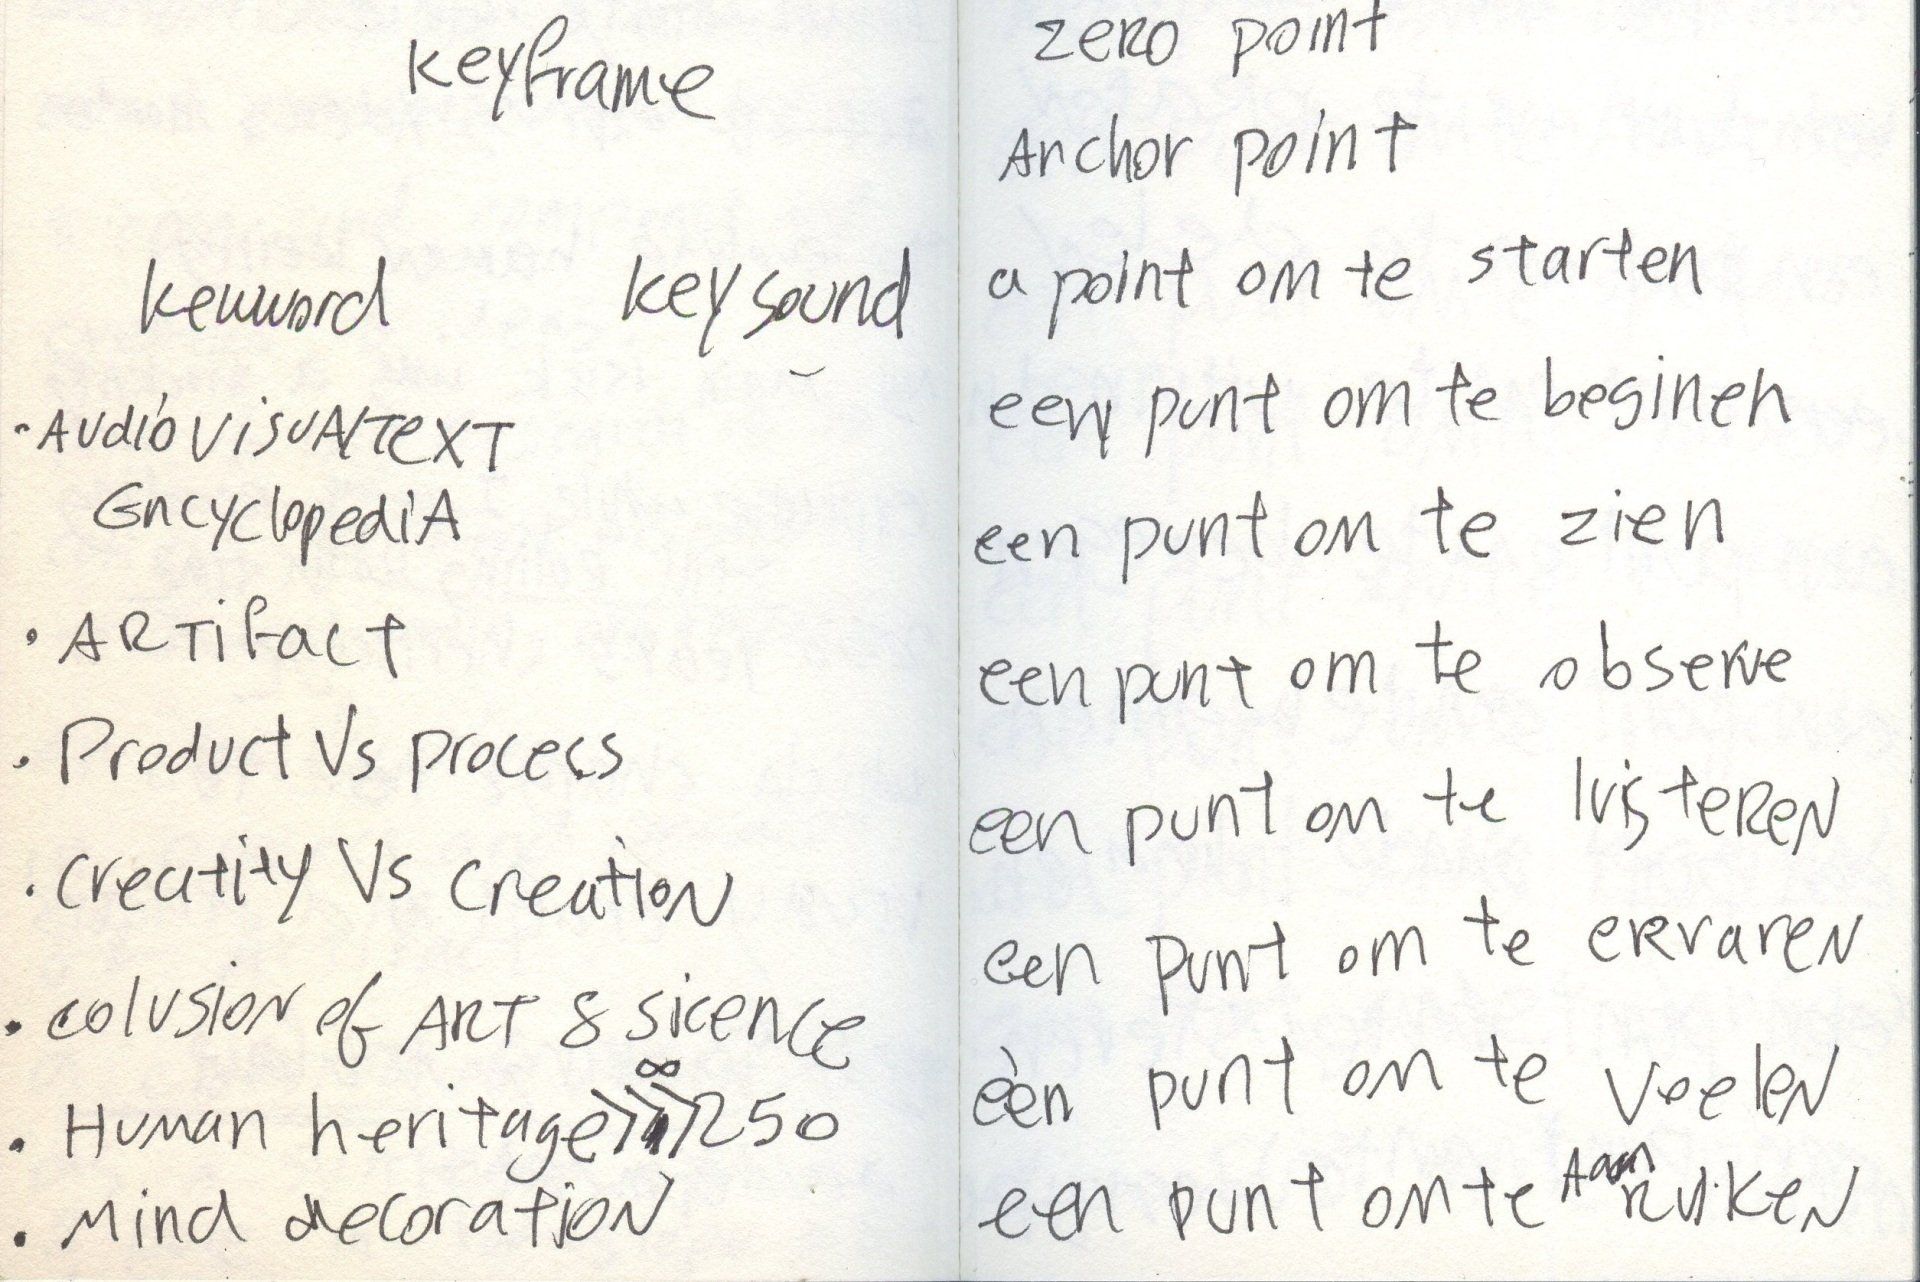 keyframe
keyword keysound
• AUdioVisuAlTeXT
EncyclopediA
• ARTifact
• Product Vs process
• Creatity Vs CreatioN
• colusion of ART & sicence
• Human heritage >>> ∞ 250
• Mind decoration
zeRO point
Anchor point
a point om te starten
een punt om te beginen
een punt om te zien
een punt om te observe
een punt om te luisteREN
een punt om te ERvareN
èèn punt om te VoeleN
een punt om te Aan RuikeN